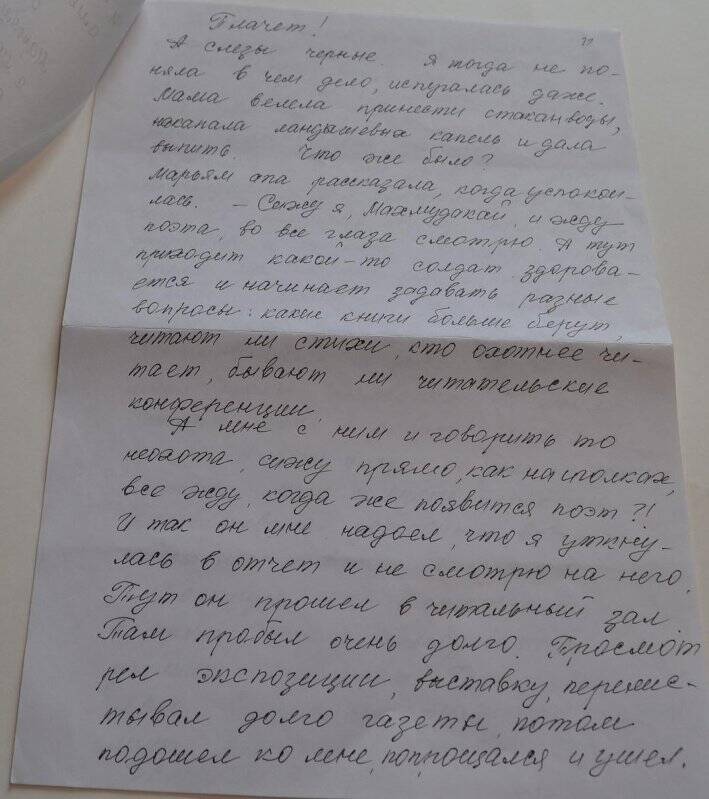 Плачет!
А слезы черные. Я тогда не по-
няла в чем дело, испугалась даже.
Мама велела принести стакан воды,
накапала ландышевых капель и дала
выпить. Что же было?
Марьям апа рассказала, когда успокои-
лась. – Сижу я, Махмудакай, и жду
поэта, во все глаза смотрю. А тут
приходит какой-то солдат, здорова-
ется и начинает задавать разные
вопросы: какие книги больше берут,
читают ли стихи, кто охотнее чи-
тает, бывают ли читательские
конференции.
А мне с ним и говорить то
неохота, сижу прямо, как на иголках,
все жду, когда же появится поэт?!
И так он мне надоел, что я уткну-
лась в отчет и не смотрю на него.
Тут он прошел в читальный зал.
Там пробыл очень долго. Просмот
рел экспозиции, выставку, перелис-
тывал долго газеты, потом
подошел ко мне, попрощался и ушел.